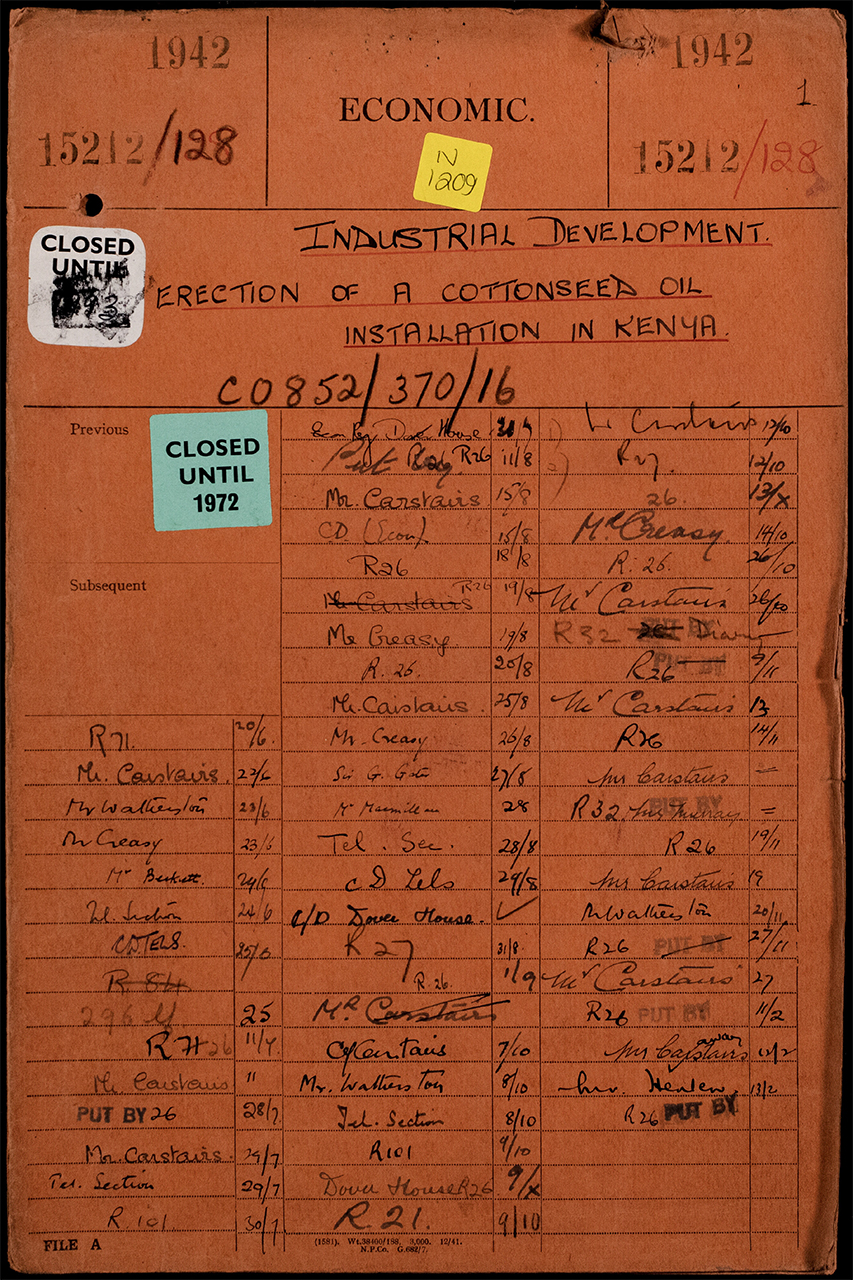 1942
ECONOMIC.
1942
1
15212/128
N
1209
15212/128
CLOSED
UNTIL
INDUSTRIAL DEVELOPMENT.
ERECTION OF A COTTONSEED OIL
INSTALLATION IN KENYA.
CO852/370/16
Previous
CLOSED
UNTIL
1972
Subsequent
R71. 20/6.
Mr. Carstairs. 22/6
Mr Watherston 23/6
Mr Creasy 23/6
Mr Beckett. 24/6
Tel. Section 24/6
CD TELS. 25/6
R 84
296 25
R 71 26 11/7.
Mr. Carstairs 11
PUT BY 26 28/7
Mr. Carstairs. 29/7
Tel. Section 29/7
R. 101 30/7
FILE A
Dover House
R26 11/8
Mr. Carstairs 15/8
CD (Econ). 15/8
R26 18/8
Mr Carstairs R26 19/8
Mr Creasy 19/8
R. 26. 20/8
Mr. Carstairs. 25/8
Mr. Creasy 26/8
Sir G. 27/8
Mr Macmillan 28
Tel. Sec. 28/8
C D Tels 29/8
C/D Dover House.
R 27 31/8
R. 26. 1/9
Mr Carstairs
Carstairs 7/10
Mr. Watherston 8/10
Tel. Section 8/10
R101 9/10
Dover House R26 9/x
R. 21. 9/10
(1581). Wt.38400/188. 3,000. 12/41.
N.P.Co. G.682/7.
12/10
R27. 12/10
26. 13/x
Mr Creasy. 14/10
R. 26. 26/10
Mr Carstairs 26/10
R32 PUT BY
R26 PUT BY 9/11
Mr Carstairs 13
R26 14/11
Mr Carstairs =
R32 PUT BY =
R 26 19/11
Mr Carstairs 19
Mr Watherston 20/11
R26 PUT BY 27/11
Mr Carstairs 27
R26 PUT BY 11/2
Mr Carstairs away 12/2
13/2
R26 PUT BY